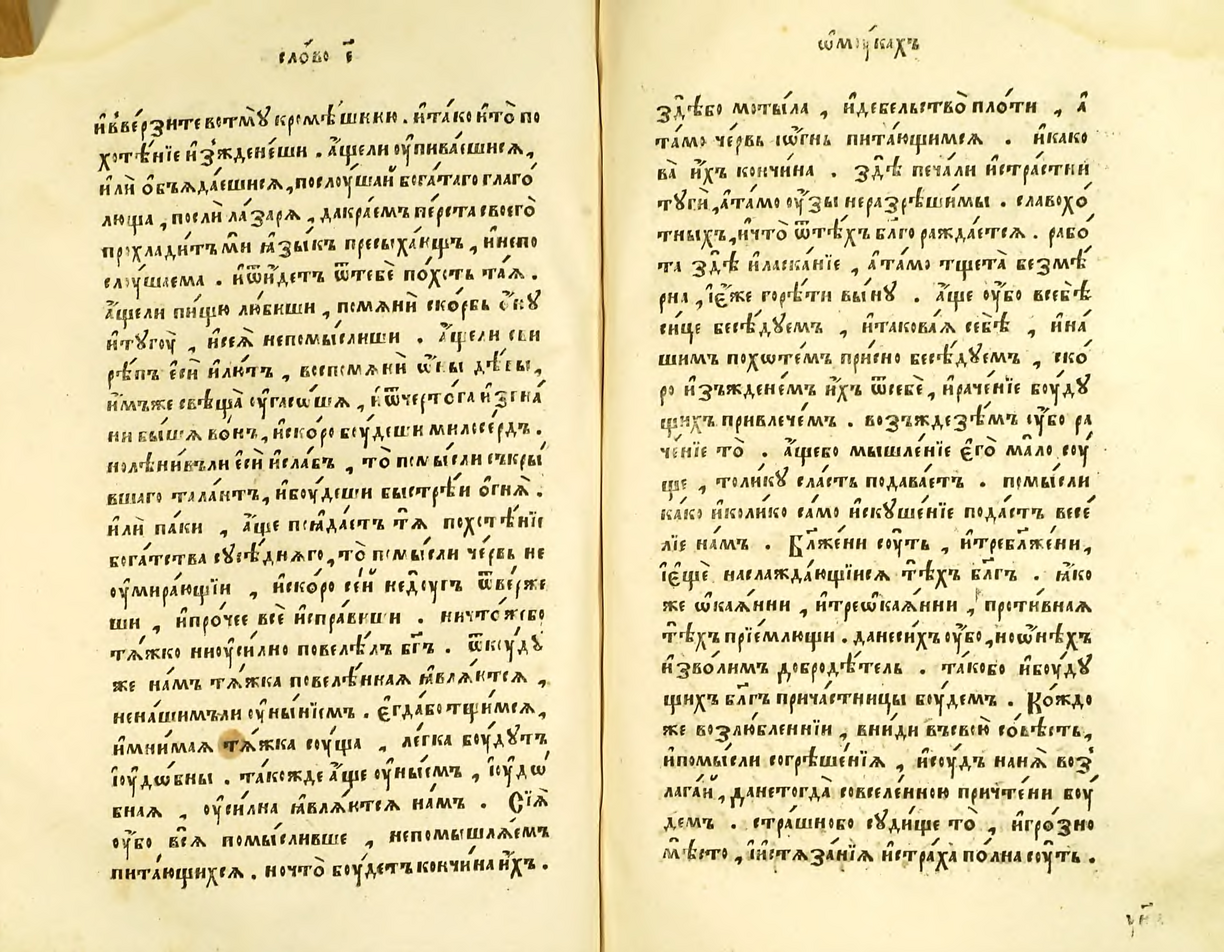 сло́во є҃
и҆вве́рзите вотмꙋ̀ кромѣ́шнюю . и҆та́ко и҆то̀ по
хотѣ́нїе и҆зждене́ши . а҆́щели оу҆пива́ешися ,
и҆лѝ ѻ҆бъꙗда́ешися , послоу́шай бога́таго глаго́
люща , послѝ ла́заря , дакра́емъ пе́рста своего̀
прохлади́тъ мѝ ꙗ҆зы́къ пресыха́ющъ , и҆непо
слоу́шаема . и҆ѿи́детъ ѿтебѐ по́хоть та́ѧ .
а҆́щели пи́щꙋ лю́биши , помѧнѝ ско́рбь ѻ҆́нꙋ
и҆тꙋгоу̀ , и҆сеѧ̀ непомы́слиши . а҆́щели сви
рѣ́пъ є҆сѝ и҆лю́тъ , воспомѧнѝ ѡ҆́ны дѣ́вы ,
и҆́мъже свѣща̀ оу҆гасо́шѧ , и҆ѿчерто́га и҆згна́
ни бы́шѧ во́нъ , и҆ско́ро боу́деши милосе́рдъ .
нолѣни́въли є҆сѝ и҆сла́бъ , то̀ помы́сли съкры́
вшаго тала́нтъ , и҆боу́деши быстрѣ́и ѻ҆гнѧ̀ .
и҆лѝ па́ки , а҆́ще поѧда́етъ тѧ̀ похотѣ́нїе
бога́тства сꙋсѣ́днѧго , то̀ помы́сли че́рвь не
оу҆мира́ющїи , и҆ско́ро се́й недоу́гъ ѿве́рже
ши , и҆про́чее всѐ и҆спра́виши . ничто́жебо
тѧ́жко ниоу҆си́лно повелѣ́лъ бг҃ъ . ѿкꙋ́дꙋ
же на́мъ тѧ́жка повелѣ́нная ꙗ҆влѧ́ются ,
нена́шимъли оу҆ны́нїемъ . є҆гда́бо тщи́мся ,
и҆мни́маѧ тѧ́жка соу́ща , ле́гка боу́дꙋтъ
і҆оу҆дѡ́бны . та́кожде а҆́ще оу҆ны́емъ , і҆оу҆дѡ́
бная , оу҆си́лна ꙗ҆влѧ́ются на́мъ . Сїѧ̀
оу҆́бо всѧ̀ помы́сливше , непомышлѧ́емъ
пита́ющихся . ночто̀ боу́детъ кончи́на и҆́хъ .
ѡ҆моу́кахъ
здѣ́бо моты́ла , и҆дебельство̀ пло́ти , а҆
та́мо че́рвь і҆ѻ҆́гнь пита́ющимся . и҆како
ва̀ и҆́хъ кончи́на . здѣ̀ печа́ли и҆стра́стни
тꙋгѝ , а҆та́мо оу҆́зы неразрѣши́мы . славохо́
тныхъ , и҆что̀ ѿтѣ́хъ бл҃го ражда́ется . рабо́
та здѣ̀ и҆ласка́нїе , а҆та́мо тщета̀ безмѣ́
рна , і҆є҆́же горѣ́ти вы́нꙋ . а҆́ще оу҆́бо всебѣ̀
си́це бесѣ́дꙋемъ , и҆такова́ѧ себѣ̀ , и҆на́
шимъ похѡте́мъ при́сно бесѣ́дꙋемъ , ско́
ро и҆зъждене́мъ и҆́хъ ѿсебѐ , и҆раче́нїе боу́дꙋ
щихъ привлече́мъ . возъжде́земъ оу҆́бо ра
че́нїе то̀ . а҆́щебо мышле́нїе є҆го̀ ма́ло соу́
ще , толи́кꙋ сла́сть подава́етъ . помы́сли
ка́ко и҆коли́ко са́мо и҆скуше́нїе пода́стъ весе́
лїе на́мъ . Бл҃же́ни соу́ть , и҆требл҃же́ни ,
і҆є҆щѐ наслажда́ющїися тѣ́хъ бл҃гъ . ꙗ҆́ко
же ѡ҆кая́нни , и҆треѡ҆кая́нни , проти́вная
тѣ́хъ прїе́млющи . данеси́хъ оу҆́бо , ноѡ҆нѣ́хъ
и҆зво́лимъ добродѣ́тель . та́кобо и҆боу́дꙋ
щихъ бл҃гъ прича́стницы боу́демъ . Ко́ждо
же возлю́бленнїи , вни́ди въсвою̀ со́вѣсть ,
и҆помы́сли согрѣше́нїѧ , и҆соу́дъ нанѧ̀ воз
лага́й , данетогда̀ совселе́нною причте́ни боу́
демъ . стра́шнобо сꙋ́дище то̀ , и҆гро́зно
мѣ́сто , і҆истѧза́нїѧ и҆стра́ха по́лна соу́ть .